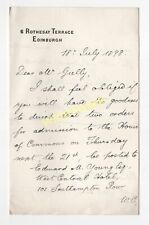 6 ROTHESAY TERRACE
EDINBURGH
18 July 1898
Dear Mr. Gully,
I shall feel obliged if
you will have the goodness
to direct that two orders
for admission to the House
of Commons on Thursday
next the 21st be posted to
Edward M. Young Esq
West Central Hotel,
101 Southampton Row
W.C